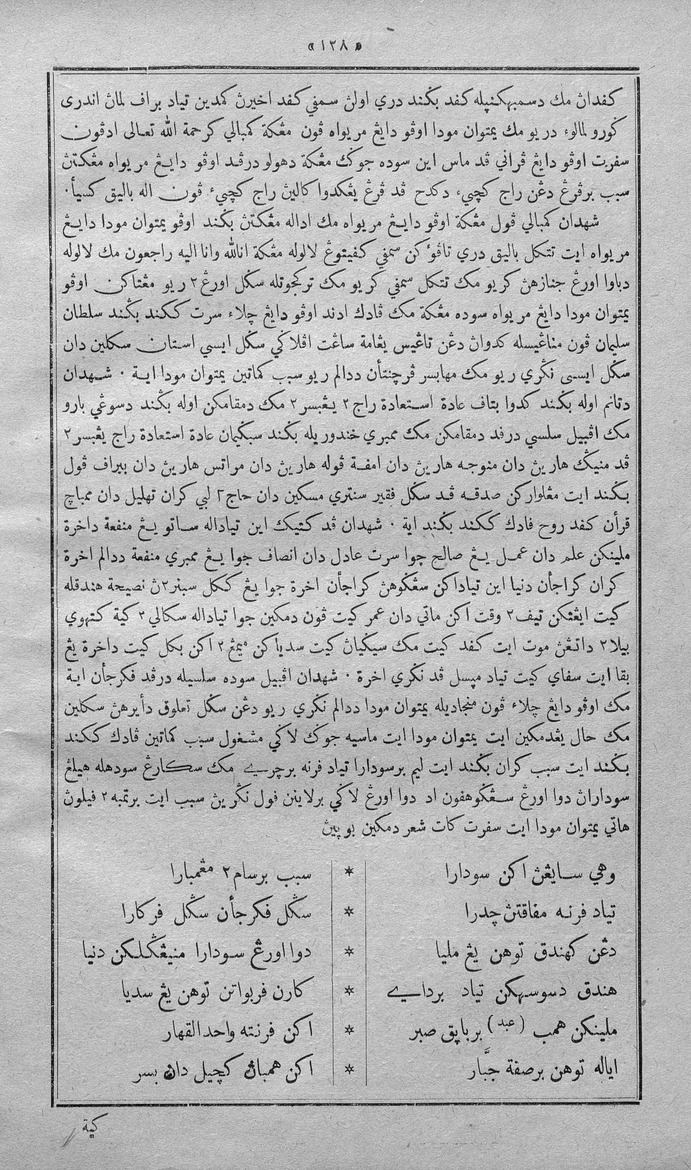 «١٢٨»
كفداڽ مك دسمبهكنيله كفد بݢند دري اولن سمڤي كفد اخيرڽ كمدين تياد براف لماڽ اندري
كورو لمالوء دريو مك يمتوان مودا اوڤو دايڠ مريواه ڤون مڠكة كمبالي كرحمة الله تعالى ادڤون
سفرت اوڤو دايڠ ڤراني ڤد ماس اين سوده جوݢ مڠكة دهولو درڤد اوڤو دايڠ مريواه مڠكتڽ
سبب برڤرڠ دڠن راج كچيء دكدح ڤد ڤرڠ يڠكدوا كالين راج كچيء ڤون اله باليق كسيأ٠
شهدان كمبالي ڤول مڠكة اوڤو دايڠ مريواه مك اداله مڠكتڽ بݢند اوڤو يمتوان مودا دايڠ
مريواه ايت تتكل باليق دري سمڤي كفيتوڠ لالوله مڠكة انالله وانا اليه راجعون مك لالوله
دباوا اورڠ جنازهڽ كريو مك تتكل سمڤي كريو مك تركجوتله سݢل اورڠ٢ ريو مڠتاكن اوڤو
يمتوان مودا دايڠ مريواه سوده مڠكة مك ڤادݢ ادند اوڤو دايڠ چلاء سرت ككند بݢند سلطان
سليمان ڤون مناڠيسله كدواڽ دڠن تاڠيس يڠامة ساڠت اڤلاݢي سݢل ايسي استان سكلين دان
سݢل ايسي نݢري ريو مك مهابسر ڤرچنتأن ددالم ريو سبب كماتين يمتوان مودا اية ٠ شهدان
دتانم اوله بݢند كدوا بتاڤ عادة استعادة راج٢ يڠبسر٢ مك دمقامكن اوله بݢند دسوڠي بارو
مك اڤبيل سلسي درڤد دمقامكن مك ممبري خندوريله بݢند سبݢيمان عادة استعادة راج يڠبسر٢
ڤد منيݢ هاريڽ دان منوجه هاريڽ دان امڤة ڤوله هاريڽ دان مراتس هاريڽ دان ببراف ڤول
بݢند ايت مڠلواركن صدقه ڤد سݢل فقير سنتري مسكين دان حاج٢ لبي كران تهليل دان ممباچ
قرأن كفد روح ڤادݢ ككند بݢند اية ٠ شهدان ڤد كتيك اين تياداله ساتو يڠ منفعة داخرة
ملينكن علم دان عمل يڠ صالح جوا سرت عادل دان انصاف جوا يڠ ممبري منفعة ددالم اخرة
كران كراجأن دنيا اين تياداكن سڠݢوهڽ كراجأن اخرة جوا يڠ ككل سبنر٢ڽ نصيحة هندقله
كيت ايڠتكن تيڤ٢ وقت اكن ماتي دان عمر كيت ڤون دمكين جوا تياداله سكالي٢ كية كتهوي
بيلا٢ داتڠڽ موت ايت كفد كيت مك سيݢياڽ كيت سدياكن اكن بكل كيت داخرة يڠ
بقا ايت سفاي كيت تياد مڽسل ڤد نݢري اخرة ٠ شهدان اڤبيل سوده سلسيله درڤد ڤكرجأن اية
مك اوڤو دايڠ چلاء ڤون منجاديله يمتوان مودا ددالم نݢري ريو دڠن سݢل تعلوق دأيرهڽ سكلين
مك حال يڠدمكين ايت يمتوان مودا ايت ماسيه جوݢ لاݢي مشغول سبب كماتين ڤادݢ ككند
بݢند ايت سبب كران بݢند ايت ليم برسودارا تياد ڤرنه برچري مك سكارڠ سودهله هيلڠ
سوداراڽ دوا اورڠ سڠݢوهڤون اد دوا اورڠ لاݢي برلاينن ڤول نݢرين سبب ايت برتمبه٢ ڤيلوڽ
هاتي يمتوان مودا ايت سفرت كات شعر دمكين بوڽيڽ
وهي سايڠڽ اكن سودارا * سبب برسام٢ مڠمبارا
تياد ڤرنه مڤاقتڽ چدرا * سݢل ڤكرجأن سݢل ڤركارا
دڠن كهندق توهن يڠ مليا * دوا اورڠ سودارا منيڠݢلكن دنيا
هندق دسوسهكن تياد برداي * كارن ڤربواتن توهن يڠ سديا
ملينكن همب (عبد) بربايق صبر * اكن ڤرنته واحد القهار
اياله توهن برصفة جبّار * اكن همباڽ كچيل دان بسر
كية